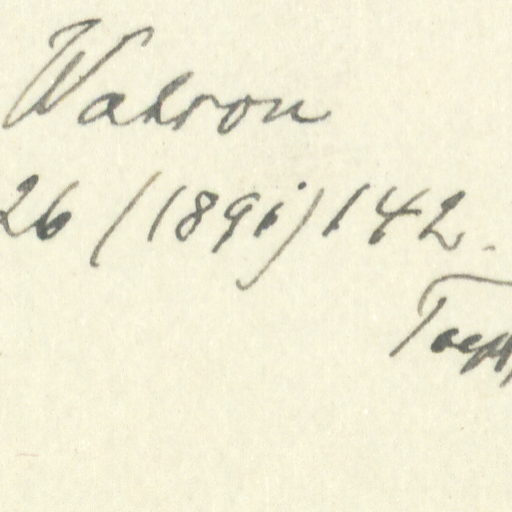 Watson
26 (1891) 142.